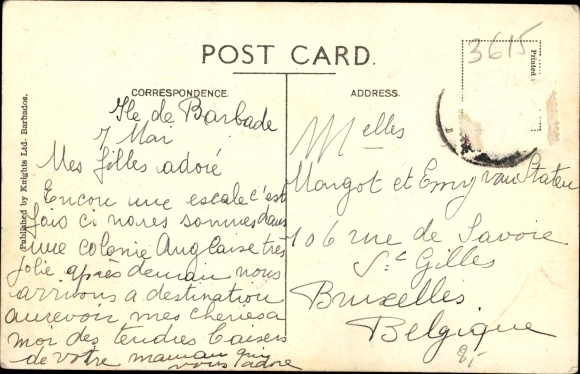 3615
POST CARD.
Printed
CORRESPONDENCE.
ADDRESS.
Published by Knights Ltd. Barbados.
Ile de Barbade
7 Mai
Mes filles adoré
Encore une escale c'est
fois ci nous sommes dans
une colonie Anglaise très
jolie après demain nous
arrivons a destination
aurevoir mes cheries a
moi des tendres baisers
de votre maman qui
vous adore
Melles
Margot et Emy van Staten
106 rue de Savoie
St Gilles
Bruxelles
Belgique
8,-